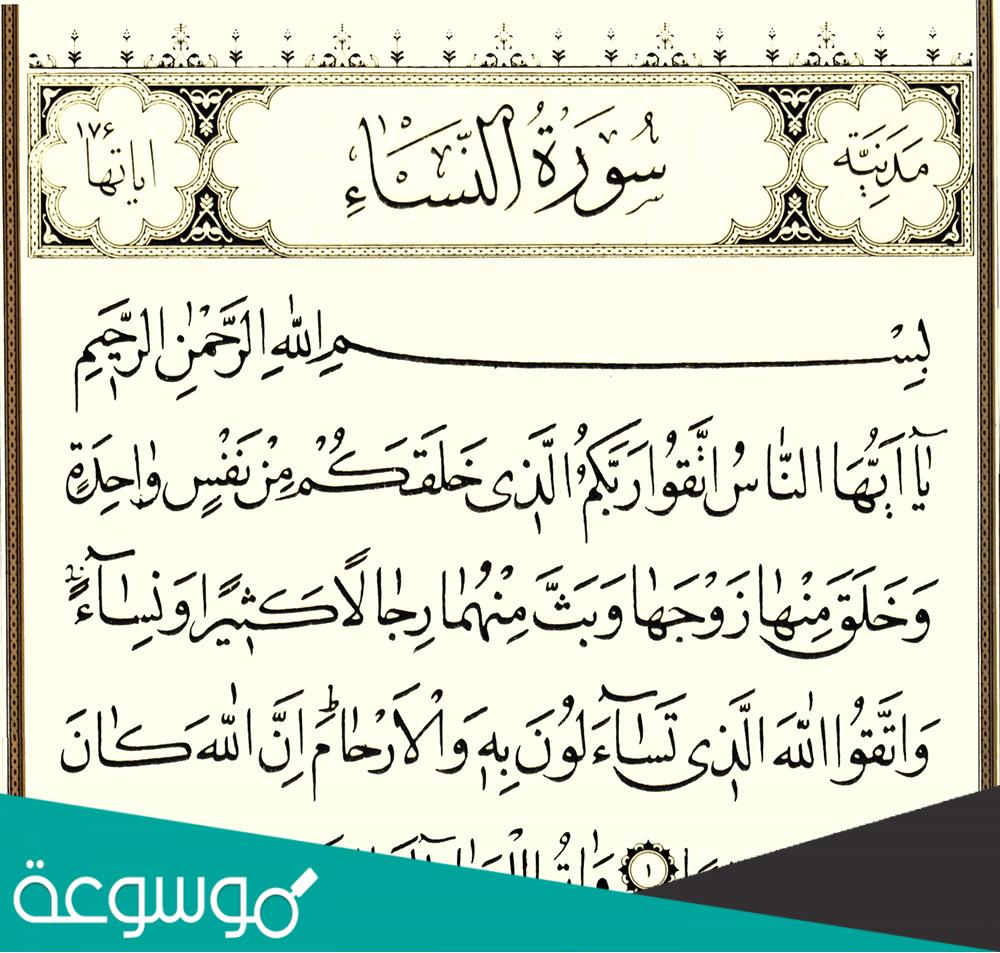 مَدَنِيَّة
سُورَةُ النِّسَاءِ
١٧۶
اياتها
بِسْمِ اللّٰهِ الرَّحْمٰنِ الرَّحِيمِ
يَٓا اَيُّهَا النَّاسُ اتَّقُوا رَبَّكُمُ الَّذ۪ى خَلَقَكُمْ مِنْ نَفْسٍ وٰاحِدَةٍ
وَخَلَقَ مِنْهٰا زَوْجَهٰا وَبَثَّ مِنْهُمٰا رِجٰالًا كَث۪يرًا وَنِسٰٓاءً
وَاتَّقُوا اللّٰهَ الَّذ۪ى تَسٰٓاءَلُونَ بِه۪ وَالْاَرْحٰامَ ۜ اِنَّ اللّٰهَ كٰانَ
١
موسوعة